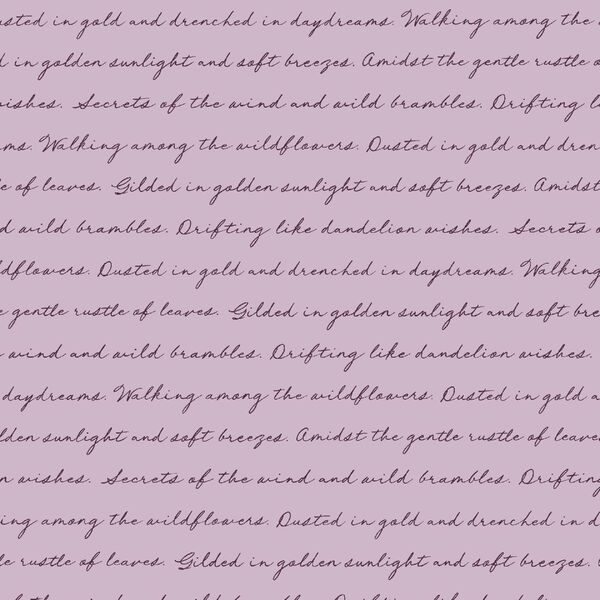 usted in gold and drenched in daydreams. Walking among the
d in golden sunlight and soft breezes. Amidst the gentle rustle o
wishes. Secrets of the wind and wild brambles. Drifting l
ms. Walking among the wildflowers. Dusted in gold and dren
le of leaves. Gilded in golden sunlight and soft breezes. Amidst
d wild brambles. Drifting like dandelion wishes. Secrets o
ldflowers. Dusted in gold and drenched in daydreams. Walking
e gentle rustle of leaves. Gilded in golden sunlight and soft bre
wind and wild brambles. Drifting like dandelion wishes.
daydreams. Walking among the wildflowers. Dusted in gold a
lden sunlight and soft breezes. Amidst the gentle rustle of leave
n wishes. Secrets of the wind and wild brambles. Drifting
ing among the wildflowers. Dusted in gold and drenched in d
le rustle of leaves. Gilded in golden sunlight and soft breezes.